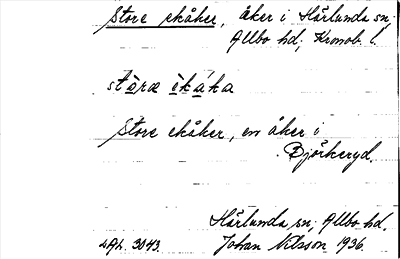 Store ekåker, åker i Härlunda sn;
Allbo hd; Kronob. l.
stòræ èkáka
Store ekåker, en åker i
Björkeryd.
Härlunda sn; Allbo hd.
3043. Johan Nilsson 1936.